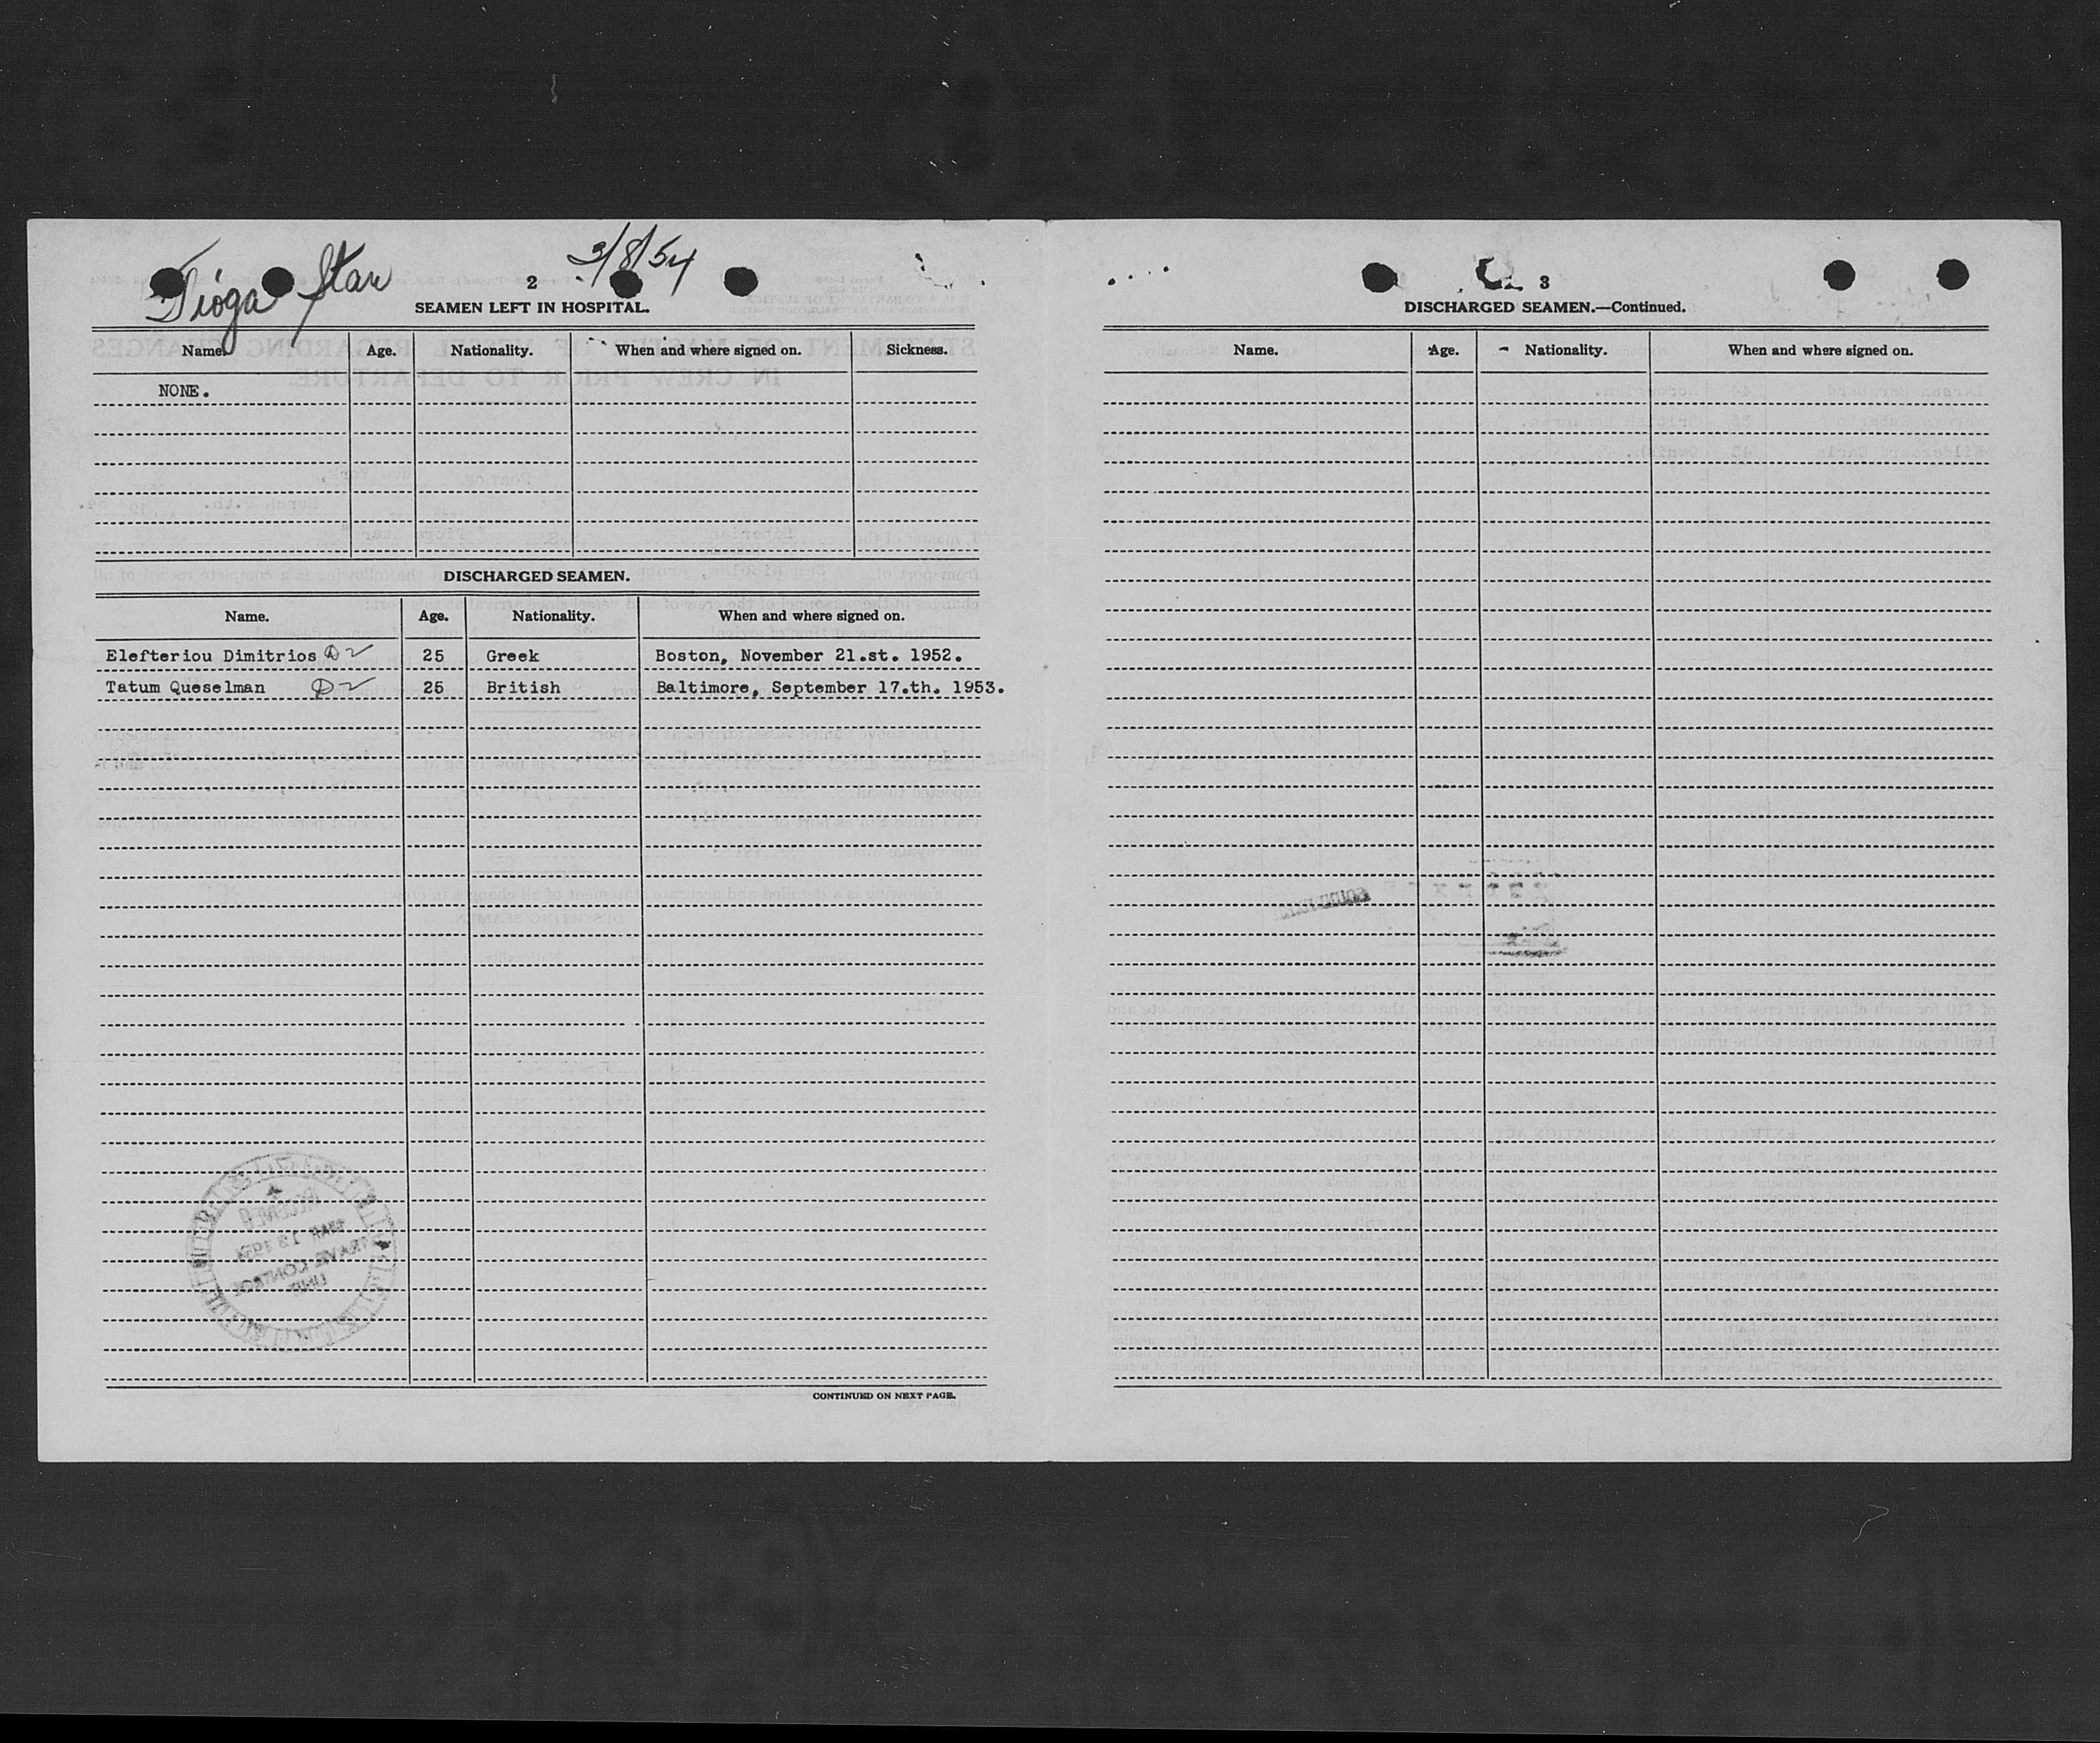 Tioga Star
3/8/54
2
SEAMEN LEFT IN HOSPITAL.
Name. Age. Nationality. When and where signed on. Sickness.
NONE.
DISCHARGED SEAMEN.
Name. Age. Nationality. When and where signed on.
Elefteriou Dimitrios D2 25 Greek Boston, November 21.st. 1952.
Tatum Queselman D2 25 British Baltimore, September 17.th. 1953.
CONTINUED ON NEXT PAGE.
3
DISCHARGED SEAMEN.—Continued.
Name. Age. Nationality. When and where signed on.